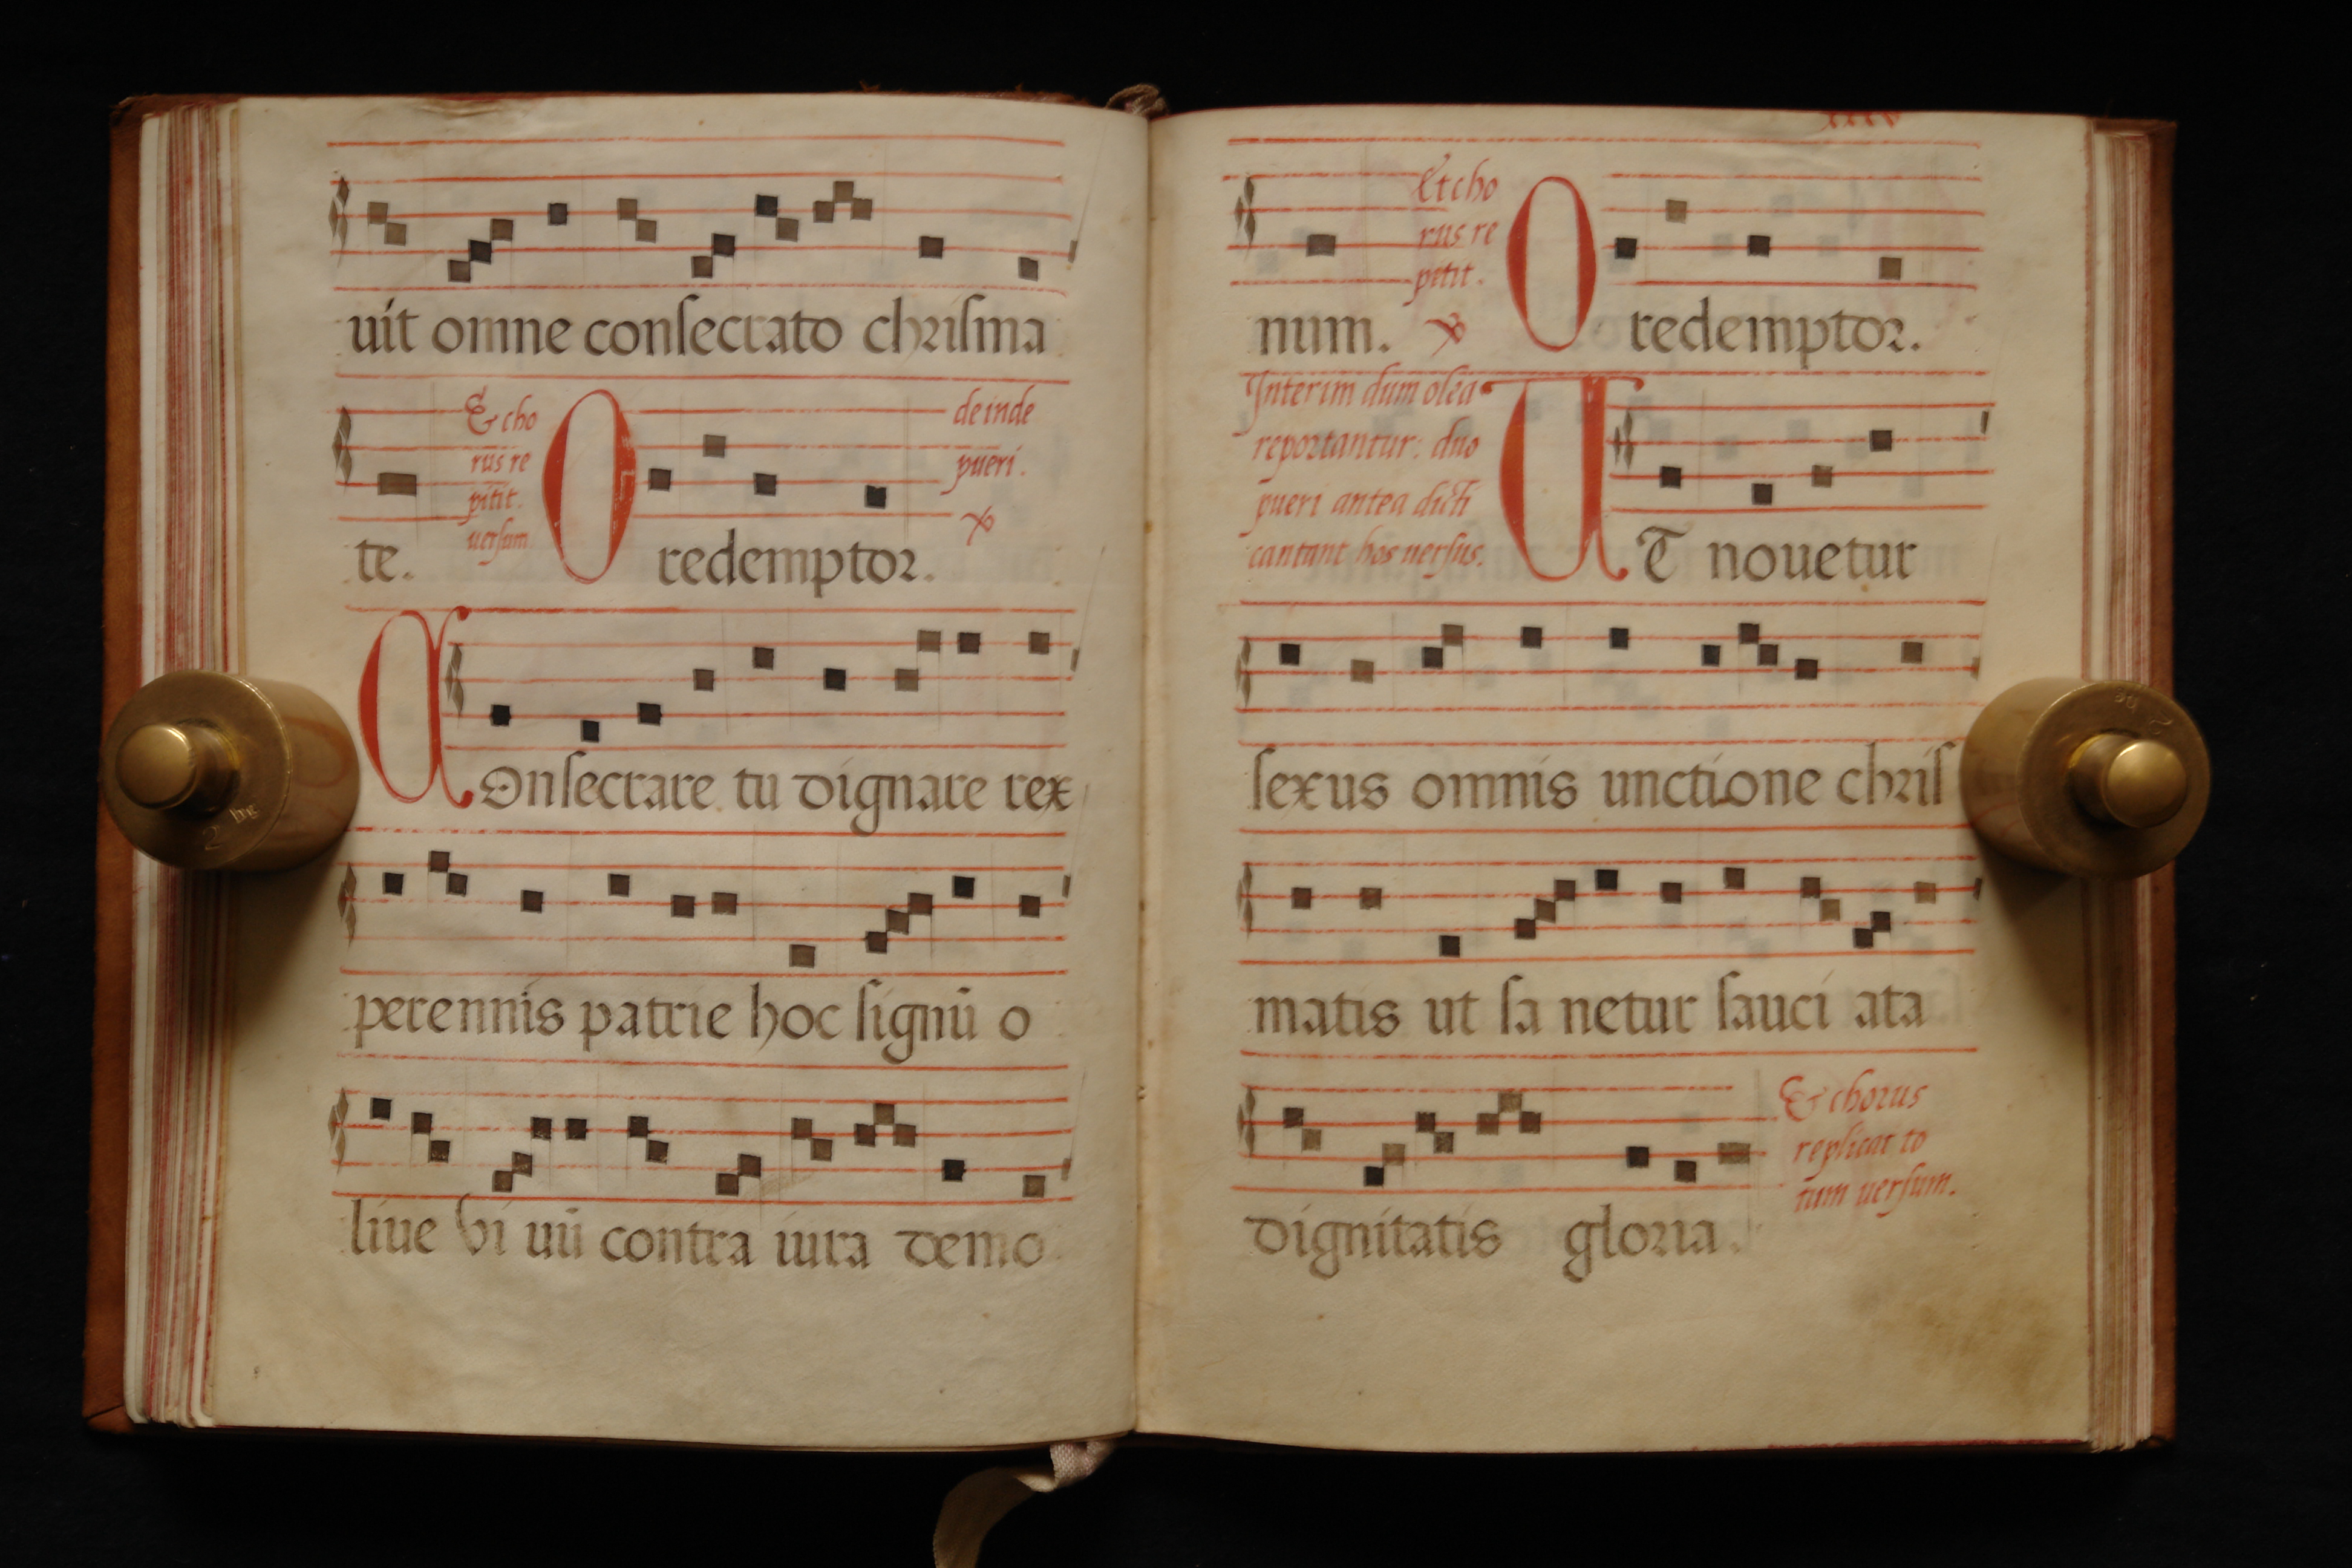 uit omne conſecrato chriſma
& cho
rus re
pitit.
uerſum.
te.
O redemptor.
deinde
pueri.
COnſecrare tu dignare rex
perennis patrie hoc ſignū o
liue vi uū contra iura demo
Et cho
rus re
petit.
num.
O redemptor.
Interim dum olea
reportantur: duo
pueri antea dicti
cantant hos uerſus.
UT nouetur
ſexus omnis unctione chriſ
matis ut ſa netur ſauci ata
dignitatis gloria.
& chorus
replicat to
tum uerſum.
2 hg
2 hg